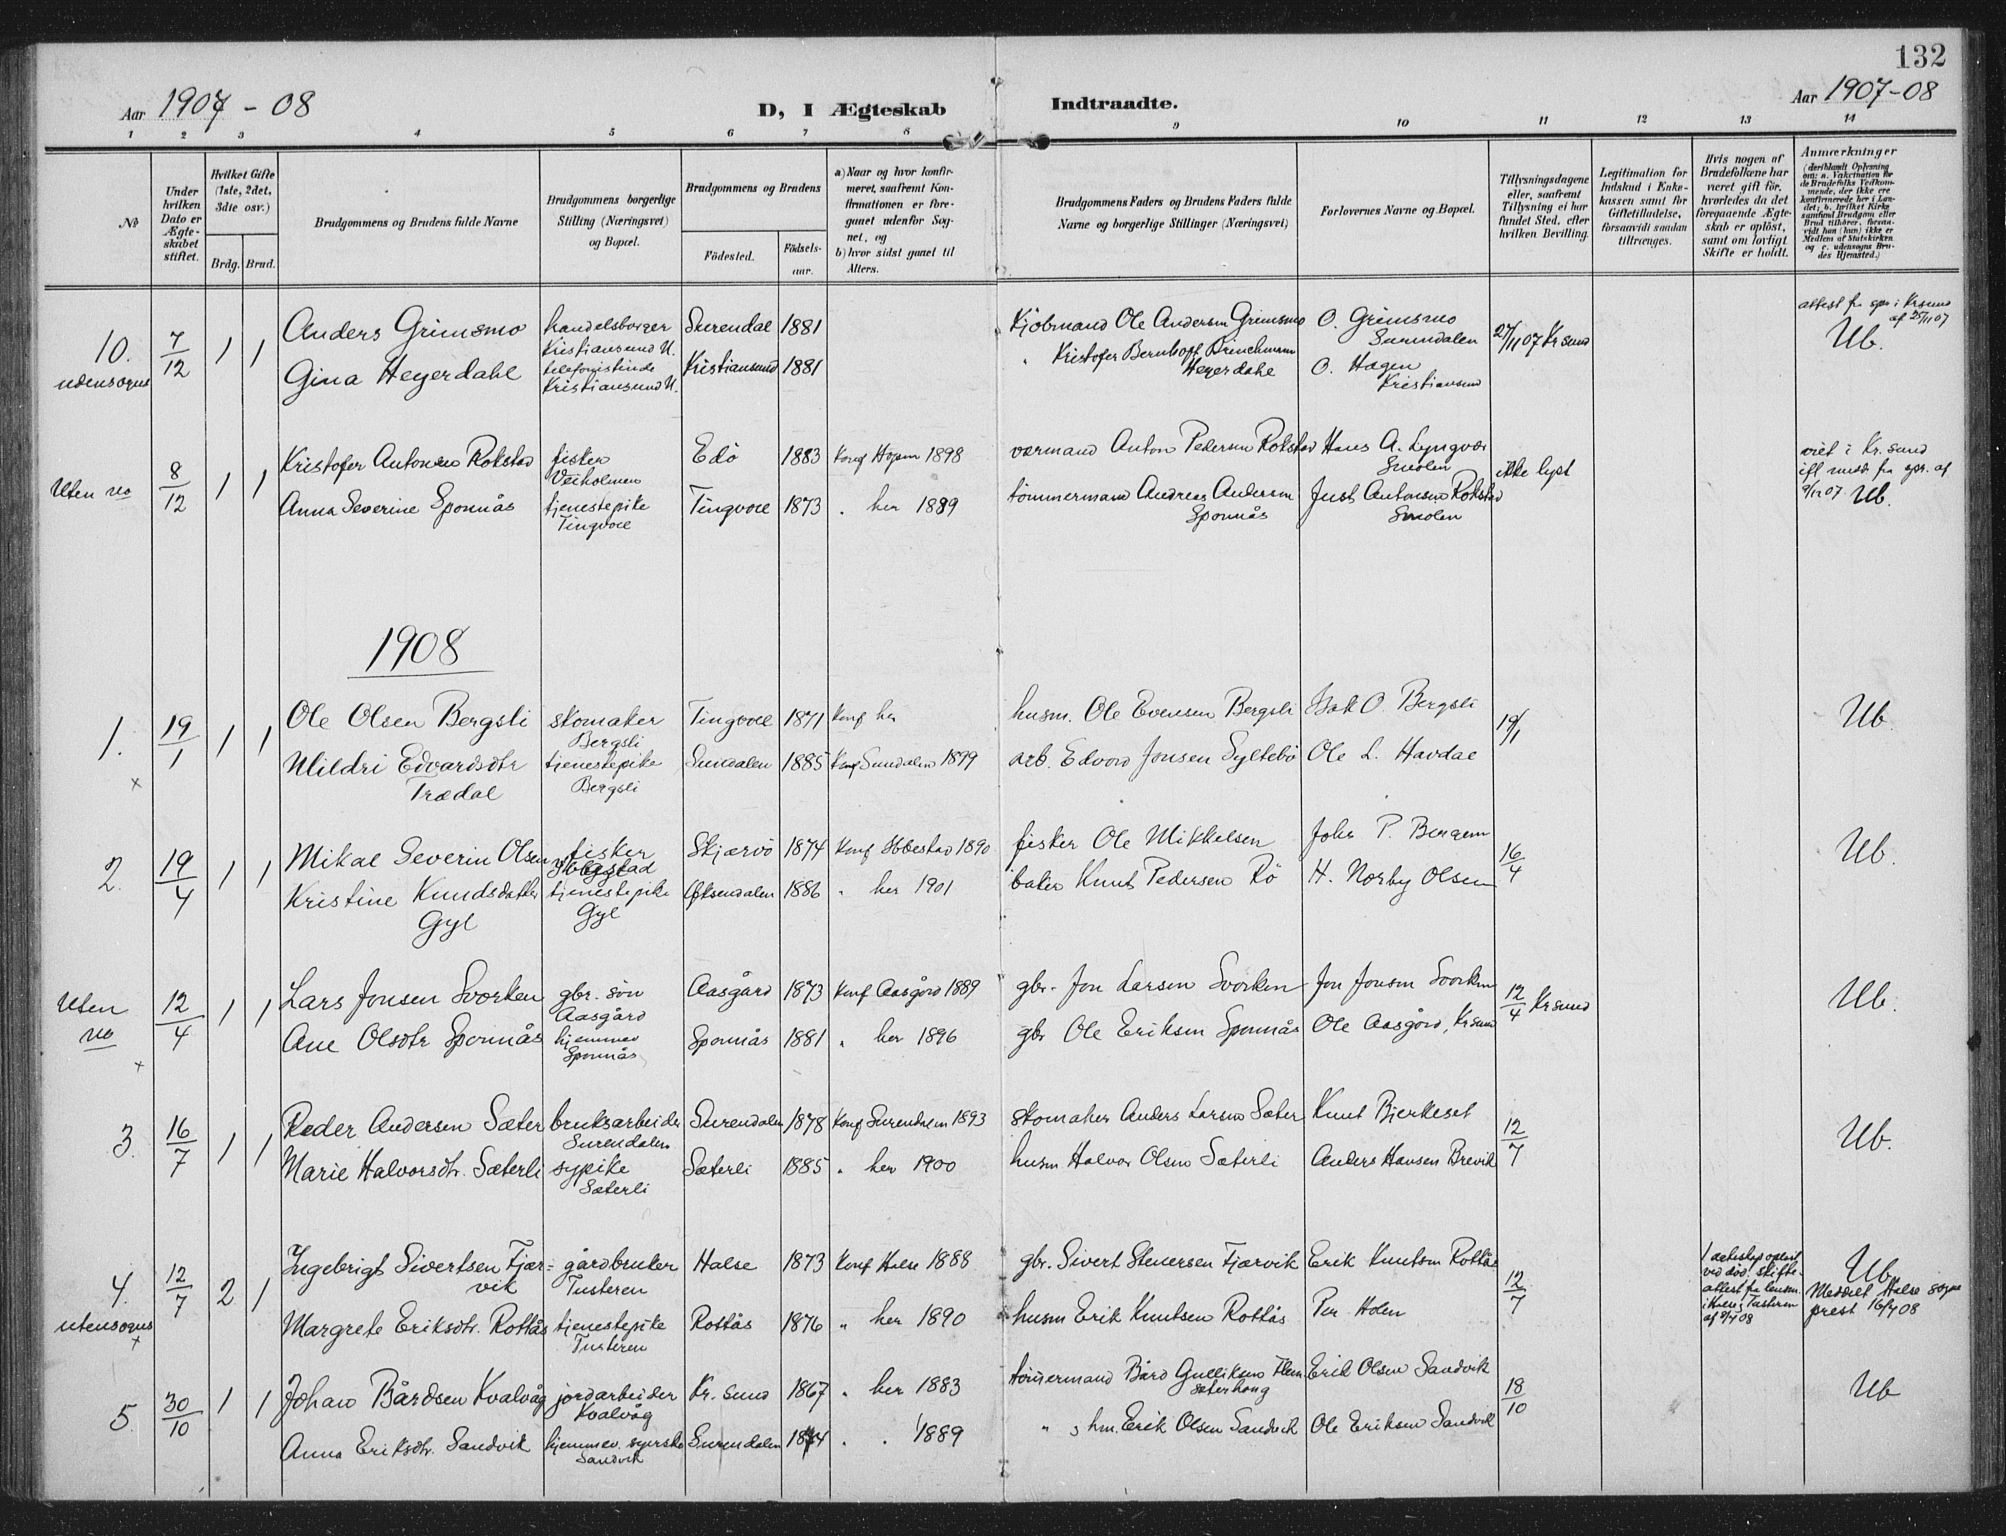 132
Aar 1907 - 08
D, I Ægteskab
Indtraadte.
Aar 1907-08
1 2 3 4 5 6 7 8 9 10 11 12 13 14
No
Under hvilken Dato er Ægteskabet stiftet.
Hvilket Gifte (1ste, 2det, 3die osv.)
Brdg. Brud.
Brudgommens og Brudens fulde Navne
Brudgommens borgerlige Stilling (Næringsvei) og Bopæl.
Brudgommens og Brudens
Födested.
Födsels-aar.
a) Naar og hvor konfirmeret, saafremt Konfirmationen er foregaaet udenfor Sognet, og
b) hvor sidst gaaet til Alters.
Brudgommens Faders og Brudens Faders fulde Navne og borgerlige Stillinger (Næringsvei)
Forlovernes Navne og Bopæl.
Tillysningsdagene eller, saafremt Tillysning ei har fundet Sted, efter hvilken Bevilling.
Legitimation for Indskud i Enkekassen samt for Giftetilladelse, forsaavidt saadan tiltrænges.
Hvis nogen af Brudefolkene har været gift för, hvorledes da det foregaaende Ægteskab er oplöst, samt om lovligt Skifte er holdt.
Anmærkninger
(deriblandt Oplysning om: a. Vakcination for de Brudefolks Vedkommende, der ikke ere konfirmerede her i Landet; b. hvilket Kirkesamfund Brudgom eller Brud tilhører, forsaavidt han (hun) ikke er Medlem af Statskirken og c. udensogns Brudes Hjemsted.)
10. udensogns
7/12 1 1
Anders Grimsmo handelsborger Kristiansund N. Surendal 1881
Kjöbmand Ole Andersen Grimsmo O. Grimsmo Surendalen
27/11 07 Kr sund
attest fra spr. i Kr sund af 25/11 07
Ub.
Gina Heyerdahl telefonistinde Kristiansund N. Kristiansund 1881
" Kristofer Bernhoft Brinchmann Heyerdahl O. Hagen Kristiansund
Uten no
8/12 1 1
Kristofer Antonsen Rokstad fisker Veiholmen Edö 1883 Konf Hopen 1898
værmand Anton Pedersen Rokstad Hans A. Lyngvær Smölen
ikke lyst
viet i Kr. sund
Ub.
Anna Severine Sponnås tjenestepike Tingvoll Tingvoll 1873 " her 1889
tömmermand Andreas Andersen Sponnås Just Antonsen Rokstad Smölen
1908
1.
19/1 1 1
Ole Olsen Bergsli skomaker Bergsli Tingvoll 1871 Konf her
husm. Ole Evensen Bergsli Isak O. Bergsli
19/1
Ub.
Mildri Edvardsdtr Trædal tjenestepike Bergsli Sundalen 1885 Konf Sundalen 1899
arb. Edvard Jonsen Syltebö Ole L. Havdal
2.
19/4 1 1
Mikal Severin Olsen fisker Ibbestad Skjærvö 1874 Konf Ibbestad 1890
fisker Ole Mikkelsen Johs P. Bergem
16/4
Ub.
Kristine Knudsdatter Gyl tjenestepike Gyl Öksendalen 1886 " her 1901
baker Knut Pedersen Rö H. Norby Olsen
Uten no
12/4 1 1
Lars Jonsen Svorken gbr. sön Aasgård Aasgård 1873 Konf Aasgård 1889
gbr. Jon Larsen Svorken Jon Jonsen Svorken
12/4 Kr sund
Ub.
Ane Olsdtr Sponnås hjemmev Sponnås Sponnås 1881 " her 1896
gbr Ole Eriksen Sponnås Ole Aasgård, Kr sund
3.
16/7 1 1
Peder Andersen Sæter bruksarbeider Surendalen Surendalen 1878 Konf Surendalen 1893
skomaker Anders Larsen Sæter Knut Bjerkeset
12/7
Ub.
Marie Halvorsdtr. Sæterli sypike Sæterli Sæterli 1885 " her 1900
husm Halvor Olsen Sæterli Anders Hansen Brevik
4. utensogns
12/7 2 1
Ingebrigt Sivertsen Fjær=vik gårdbruker Tusteren Halse 1873 Konf Halse 1888
gbr. Sivert Stenersen Fjærvik Erik Knutsen Rottås
12/7
ved död. Skifteattest fra lensm. i Halse, Tusteren
Ub
Meddelt Halse sogneprest 16/7 08
Margrete Eriksdtr. Rottås tjenestepike Tusteren Rottås 1876 " her 1890
husm Erik Knutsen Rottås Per Holen
5.
30/10 1 1
Johan Bårdsen Kvalvåg jordarbeider Kvalvåg Kr. sund 1867 " her 1883
tömmermand Bård Gulliksen Erik Olsen Sandvik
18/10
Ub
Anna Eriksdtr. Sandvik hjemmev. syerske Sandvik Surendalen 1874 " " 1889
" hm. Erik Olsen Sandvik Ole Eriksen Sandvik